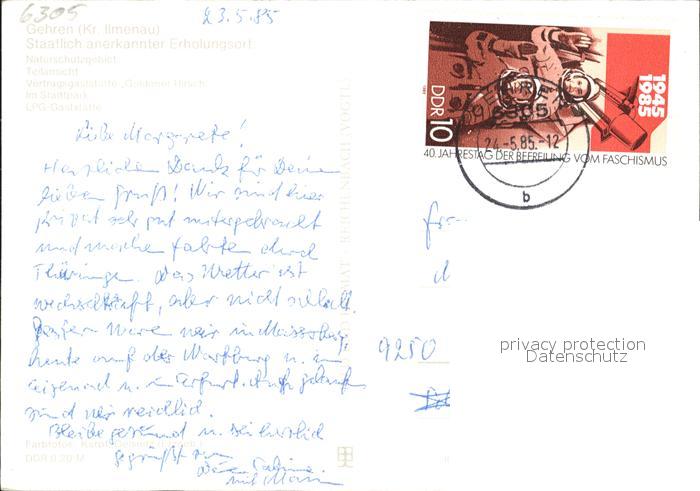 6305
23.5.85
Gehren (Kr. Ilmenau)
Staatlich anerkannter Erholungsort
Naturschutzgebiet
Teilansicht
Vertragsgaststätte „Goldener Hirsch"
Im Stadtpark
LPG-Gaststätte
Liebe Margarete!
Herzlichen Dank für Deine
lieben Gruß! Wir sind hier
privat sehr gut untergebracht
und machen Fahrten durch
Thüringen. Das Wetter ist
wechselhaft, aber nicht schlecht.
Gestern waren wir in
heute auf der Wartburg u. in
Eisenach u. in Erfurt.
sind wir reichlich.
Bleibe gesund u. sei herzlich
gegrüßt von
mit
Farbfotos:
DDR 0,20 M
REICHENBACH (VOGTL)
DDR 10
1945
1985
40. JAHRESTAG DER BEFREIUNG VOM FASCHISMUS
6305
24.-5.85.-12
b
9250
privacy protection
Datenschutz